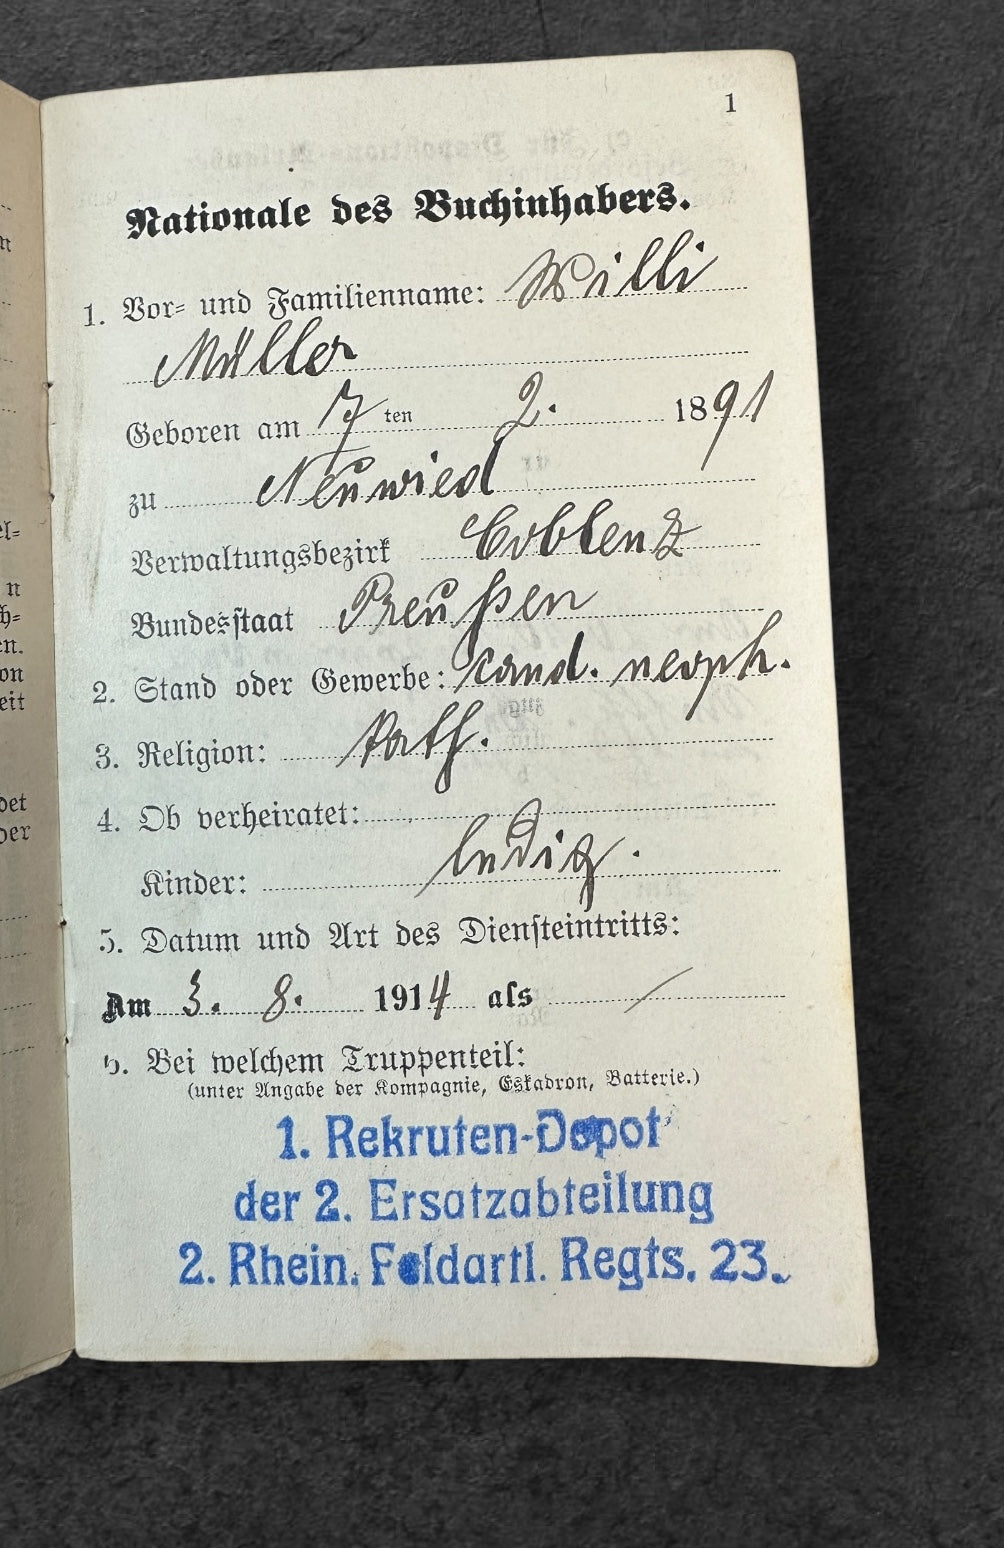 1
Nationale des Buchinhabers.
1. Vor- und Familienname: Willi
Müller
Geboren am 7 ten 2. 1891
zu Neuwied
Verwaltungsbezirk Coblenz
Bundesstaat Preußen
2. Stand oder Gewerbe: cand. neoph.
3. Religion: kath.
4. Ob verheiratet:
Kinder: ledig.
5. Datum und Art des Diensteintritts:
Am 3. 8. 1914 als /
6. Bei welchem Truppenteil:
(unter Angabe der Kompagnie, Eskadron, Batterie.)
1. Rekruten-Depot
der 2. Ersatzabteilung
2. Rhein. Feldartl. Regts. 23.